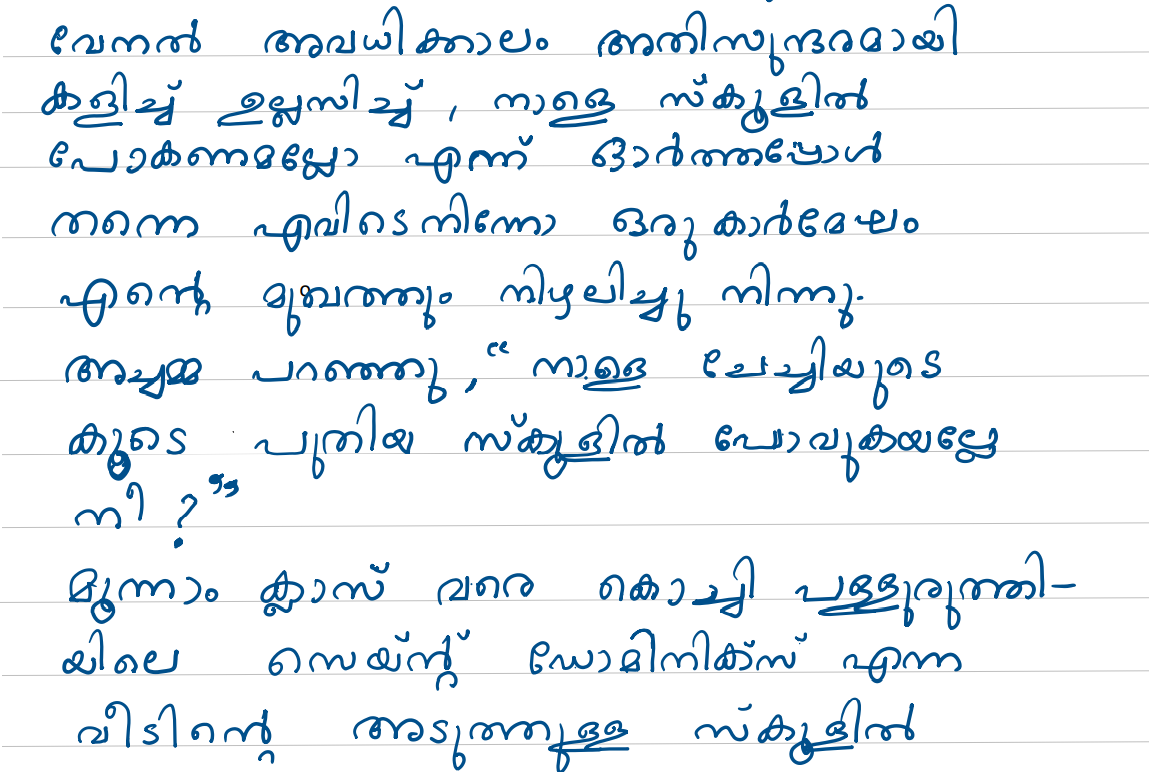 വേനൽ അവധിക്കാലം അതിസുന്ദരമായി
കളിച്ച് ഉല്ലസിച്ച്, നാളെ സ്കൂളിൽ
പോകണമല്ലോ എന്ന് ഓർത്തപ്പോൾ
തന്നെ എവിടെനിന്നോ ഒരു കാർമേഘം
എന്റെ മുഖത്തും നിഴലിച്ചു നിന്നു.
അച്ചമ്മ പറഞ്ഞു, “നാളെ ചേച്ചിയുടെ
കൂടെ പുതിയ സ്കൂളിൽ പോവുകയല്ലേ
നീ?”
മൂന്നാം ക്ലാസ് വരെ കൊച്ചി പള്ളുരുത്തി-
യിലെ സെയ്ന്റ് ഡോമിനിക്സ് എന്ന
വീടിന്റെ അടുത്തുള്ള സ്കൂളിൽ